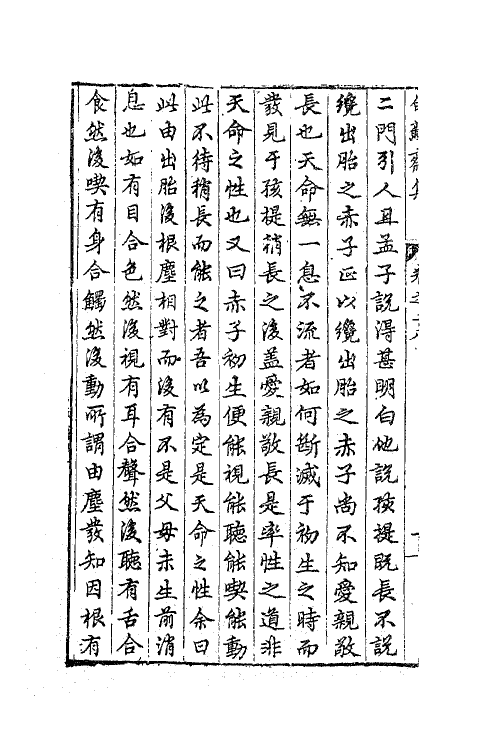 二門引人且孟子說得甚明白他說孩提旣長不說
纔出胎之赤子正以纔出胎之赤子尚不知愛親敬
長也天命無一息不流者如何斷滅于初生之時而
發見于孩提稍長之後蓋愛親敬長是率性之道非
天命之性也又曰赤子初生便能視能聽能喫能動
此不待稍長而能之者吾以為定是天命之性余曰
此由出胎後根塵相對而後有不是父母未生前消
息也如有目合色然後視有耳合聲然後聽有舌合
食然後喫有身合觸然後動所謂由塵發知因根有